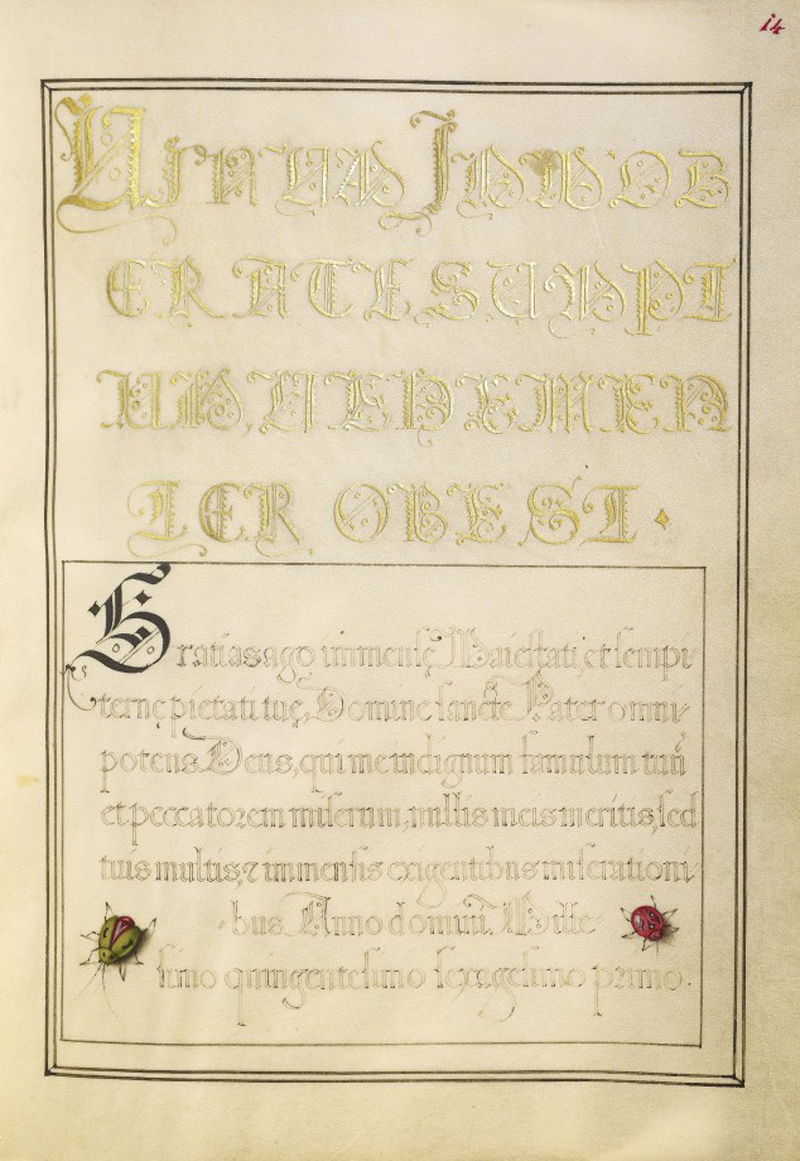 i4
Uinum Immod
ERATE SUMPT
UM, UEHEMEN
TER OBEST.
Gratias ago immensę Maiestati, et sempi
ternę pietati tuę, Domine sancte Pater omni
potens Deus, qui me indignum famulum tuū
et peccatorem miserum, nullis meis meritis, sed
tuis multis, & immensis exigentibus miserationi
bus. Anno domini. Mille
simo quingentesimo sexagesimo primo.